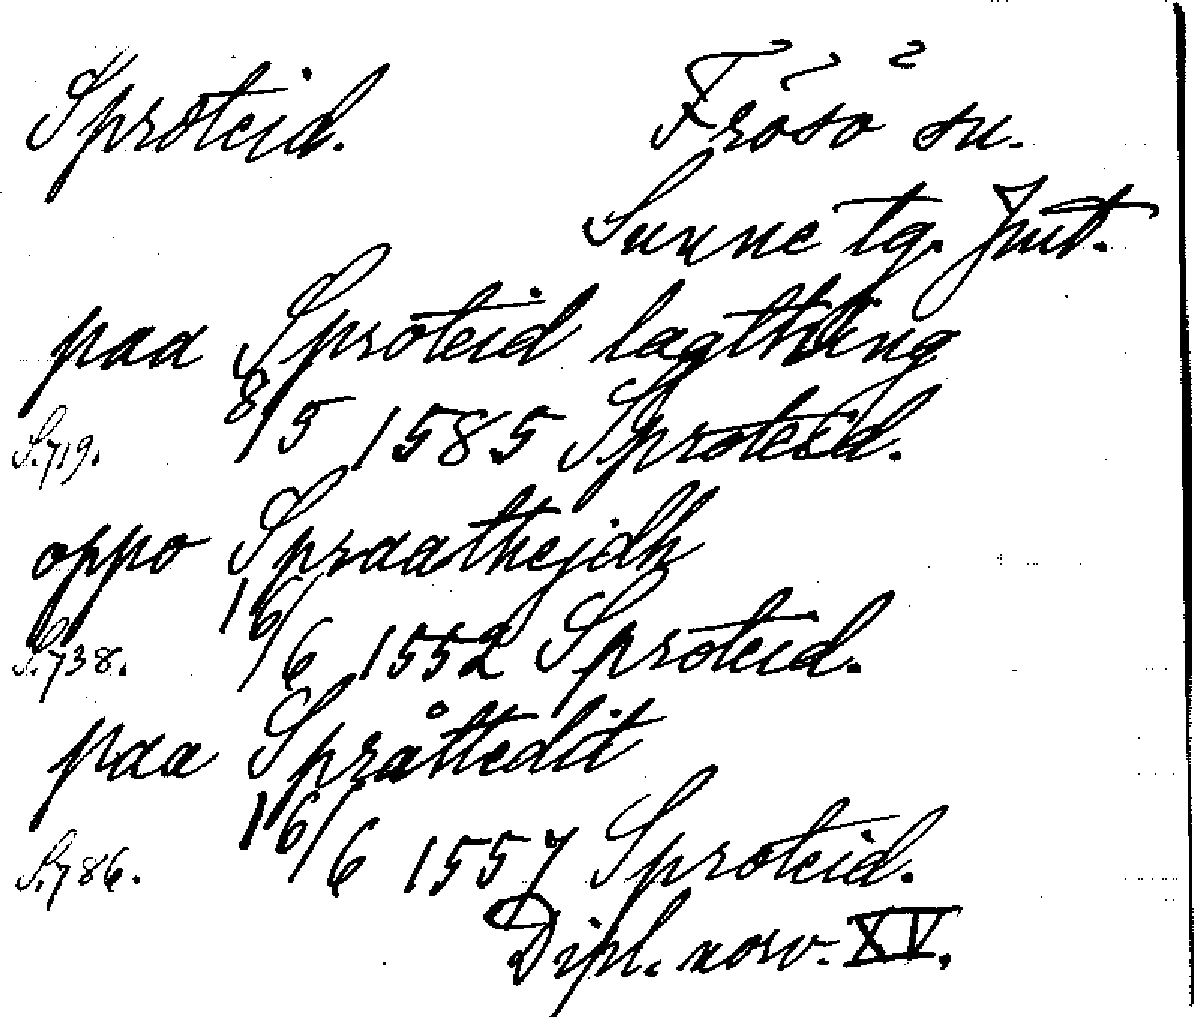 Sproteid. Frösö sn.
Sunne tg. Jmt.
paa Sproteid lagthing
S.719. 8/5 1585 Sproteid.
oppo Spraathejdh
S.738. 16/6 1552 Sproteid.
paa Språttedit
S.786. 16/6 1557 Sproteid.
Dipl. norv. XV.